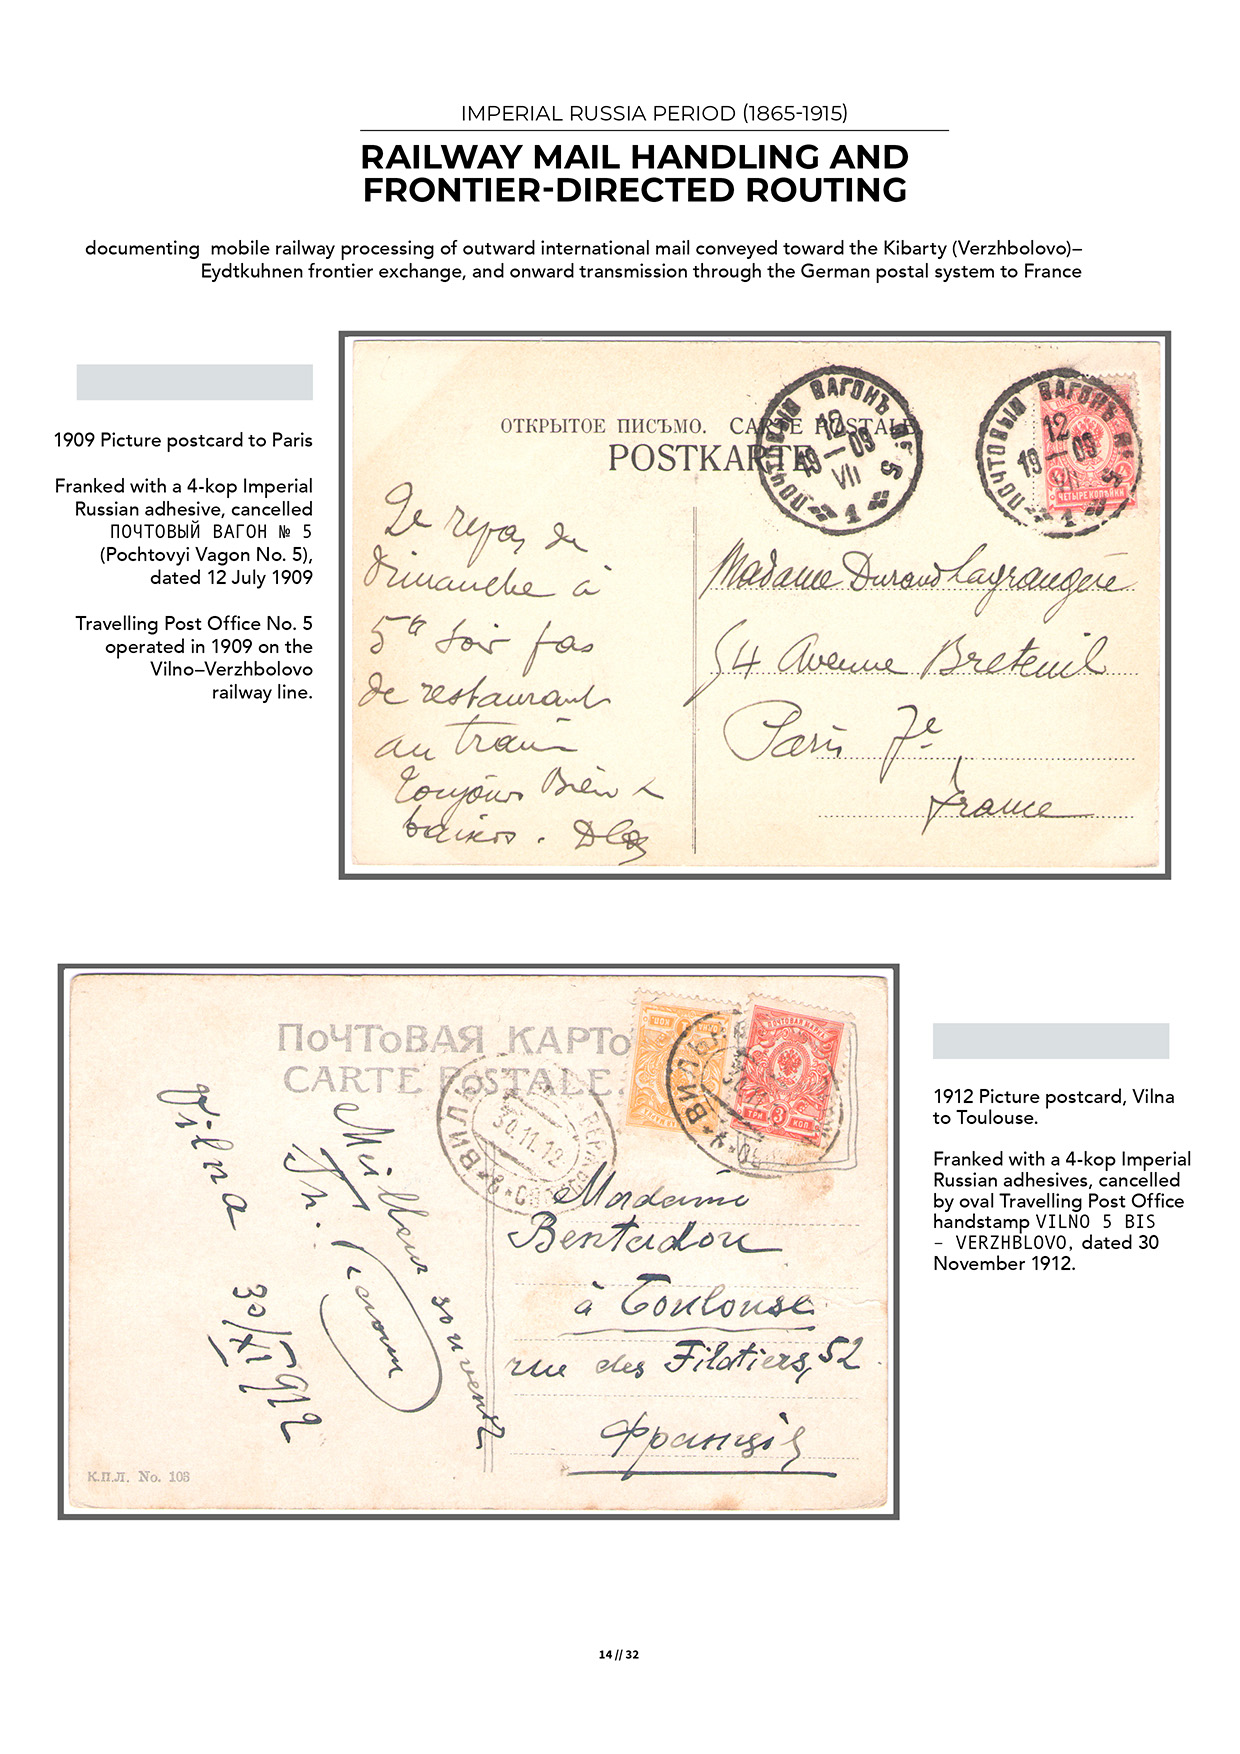 IMPERIAL RUSSIA PERIOD (1865-1915)
RAILWAY MAIL HANDLING AND
FRONTIER-DIRECTED ROUTING
documenting mobile railway processing of outward international mail conveyed toward the Kibarty (Verzhbolovo)–
Eydtkuhnen frontier exchange, and onward transmission through the German postal system to France
1909 Picture postcard to Paris
Franked with a 4-kop Imperial
Russian adhesive, cancelled
ПОЧТОВЫЙ ВАГОН № 5
(Pochtovyi Vagon No. 5),
dated 12 July 1909
Travelling Post Office No. 5
operated in 1909 on the
Vilno–Verzhbolovo
railway line.
ОТКРЫТОЕ ПИСЬМО. CARTE POSTALE
POSTKARTE
ПОЧТОВЫЙ ВАГОНЪ № 5
12
19–09
VII
1
ПОЧТОВЫЙ ВАГОНЪ № 5
12
19–09
VII
1
ЧЕТЫРЕ КОПѢЙКИ
de
dimanche à
5h soir pas
de restaurant
au train
Toujours Bien
baisers.
Madame Durand Lagrangère
54 Avenue Breteuil
Paris 7e
France
ПОЧТОВАЯ КАРТО
CARTE POSTALE.
ВИЛЬ
30.11.12
ВИЛЬ
30.11
ПОЧТОВАЯ МАРКА
ТРИ 3 КОП
Vilna
30/XI 1912
Meilleur souvenir
Madame
Bentadou
à Toulouse
rue des Filatiers, 52
Франція
К.П.Л. No. 103
1912 Picture postcard, Vilna
to Toulouse.
Franked with a 4-kop Imperial
Russian adhesives, cancelled
by oval Travelling Post Office
handstamp VILNO 5 BIS
– VERZHBLOVO, dated 30
November 1912.
14 // 32